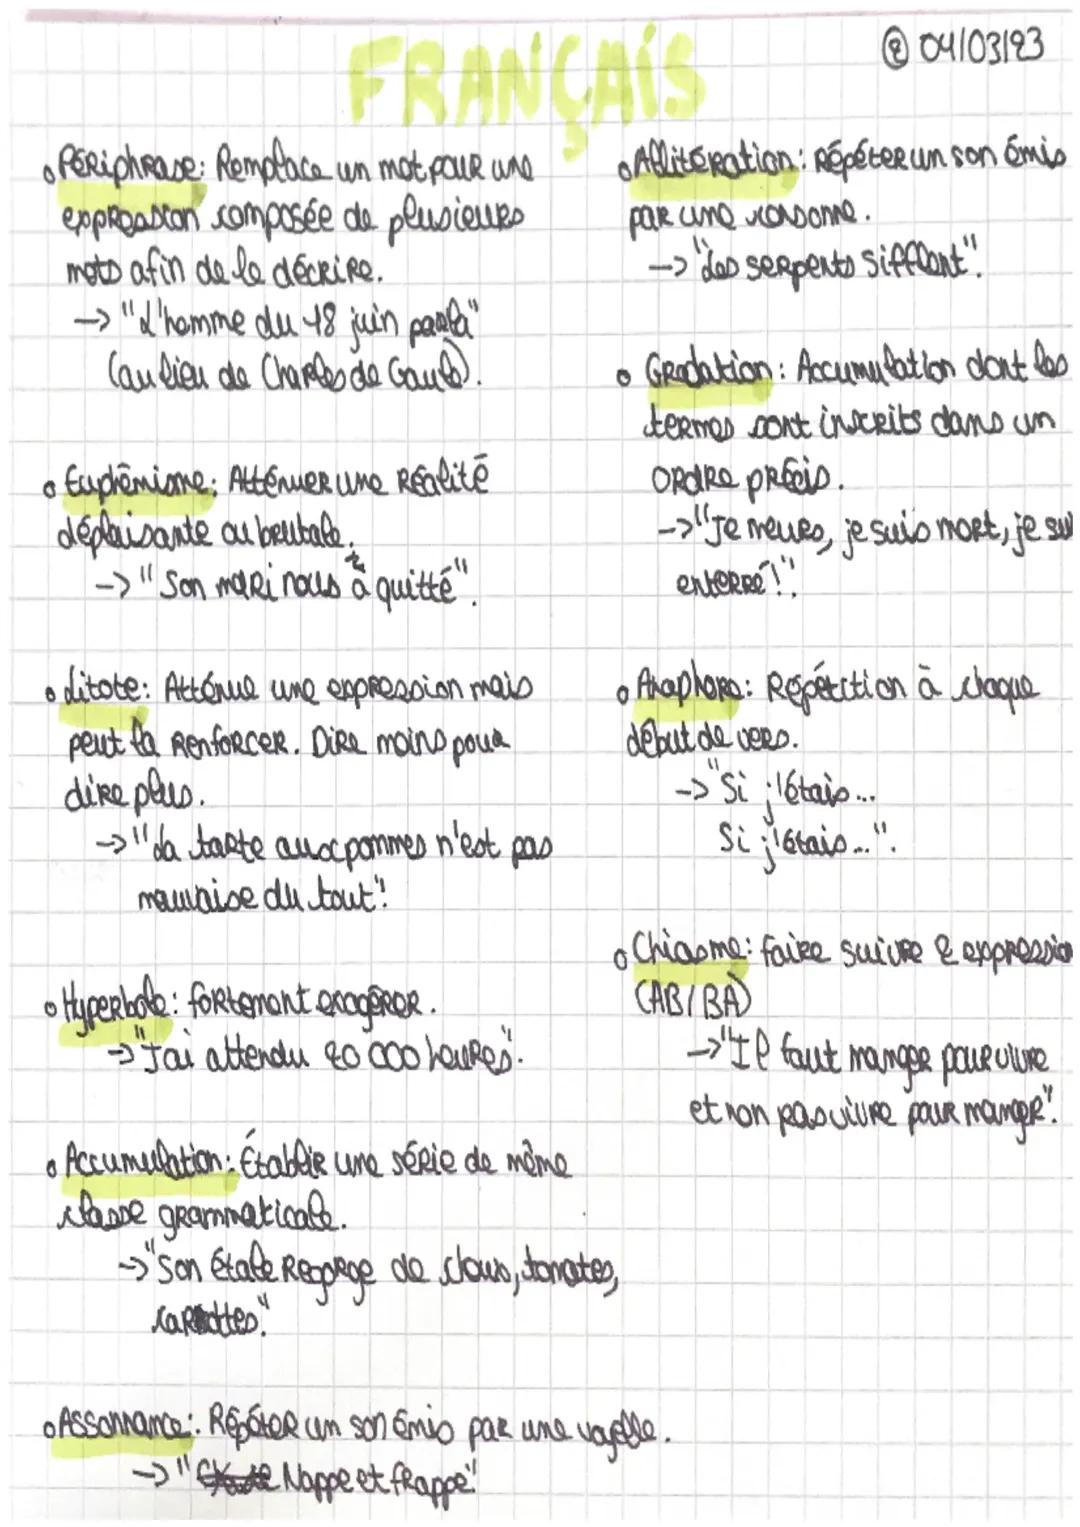 FRANÇAIS
② 04/03/23
Périphrase: Remplace un mot pour une
expression composée de plusieurs
mots afin de le décrire.
-> "L'homme du 18 juin parla"
(au lieu de Charles de Gaule).
Euphémisme: Atténuer une réalité
déplaisante ou brutale.
-> "Son mari nous a quitté".
Litote: Atténue une expression mais
peut la renforcer. Dire moins pour
dire plus.
-> "La tarte aux pommes n'est pas
mauvaise du tout".
Hyperbole: fortement exagérer.
-> "J'ai attendu 20 000 heures".
Accumulation: Établir une série de même
classe grammaticale.
-> "Son étale regorge de clous, tomates,
carottes."
Assonnance: Répéter un son émis par une voyelle.
-> "Nappe et frappe".
Allitération: Répéter un son émis
par une consonne.
-> "des serpents sifflent".
Gradation: Accumulation dont les
termes sont inscrits dans un
ordre précis.
-> "Je meurs, je suis mort, je sui
enterré!".
Anaphore: Répétition à chaque
début de vers.
-> "Si j'étais...
Si j'étais...".
Chiasme: faire suivre 2 expression
(AB/BA)
-> "Il faut manger pour vivre
et non pas vivre pour manger".